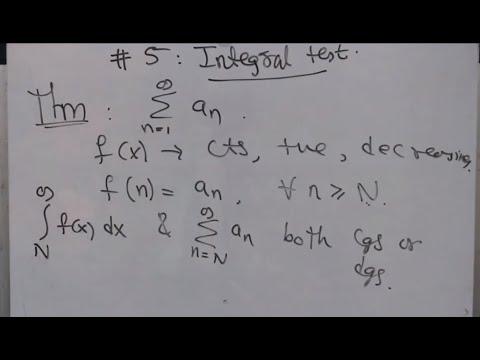 # 5: Integral test.
Thm: ∞∑n=1 an.
f(x) → cts, +ve, decreasing.
f(n) = an, ∀ n ≥ N.
∞∫N f(x) dx & ∞∑n=N an both cgs or
dgs.